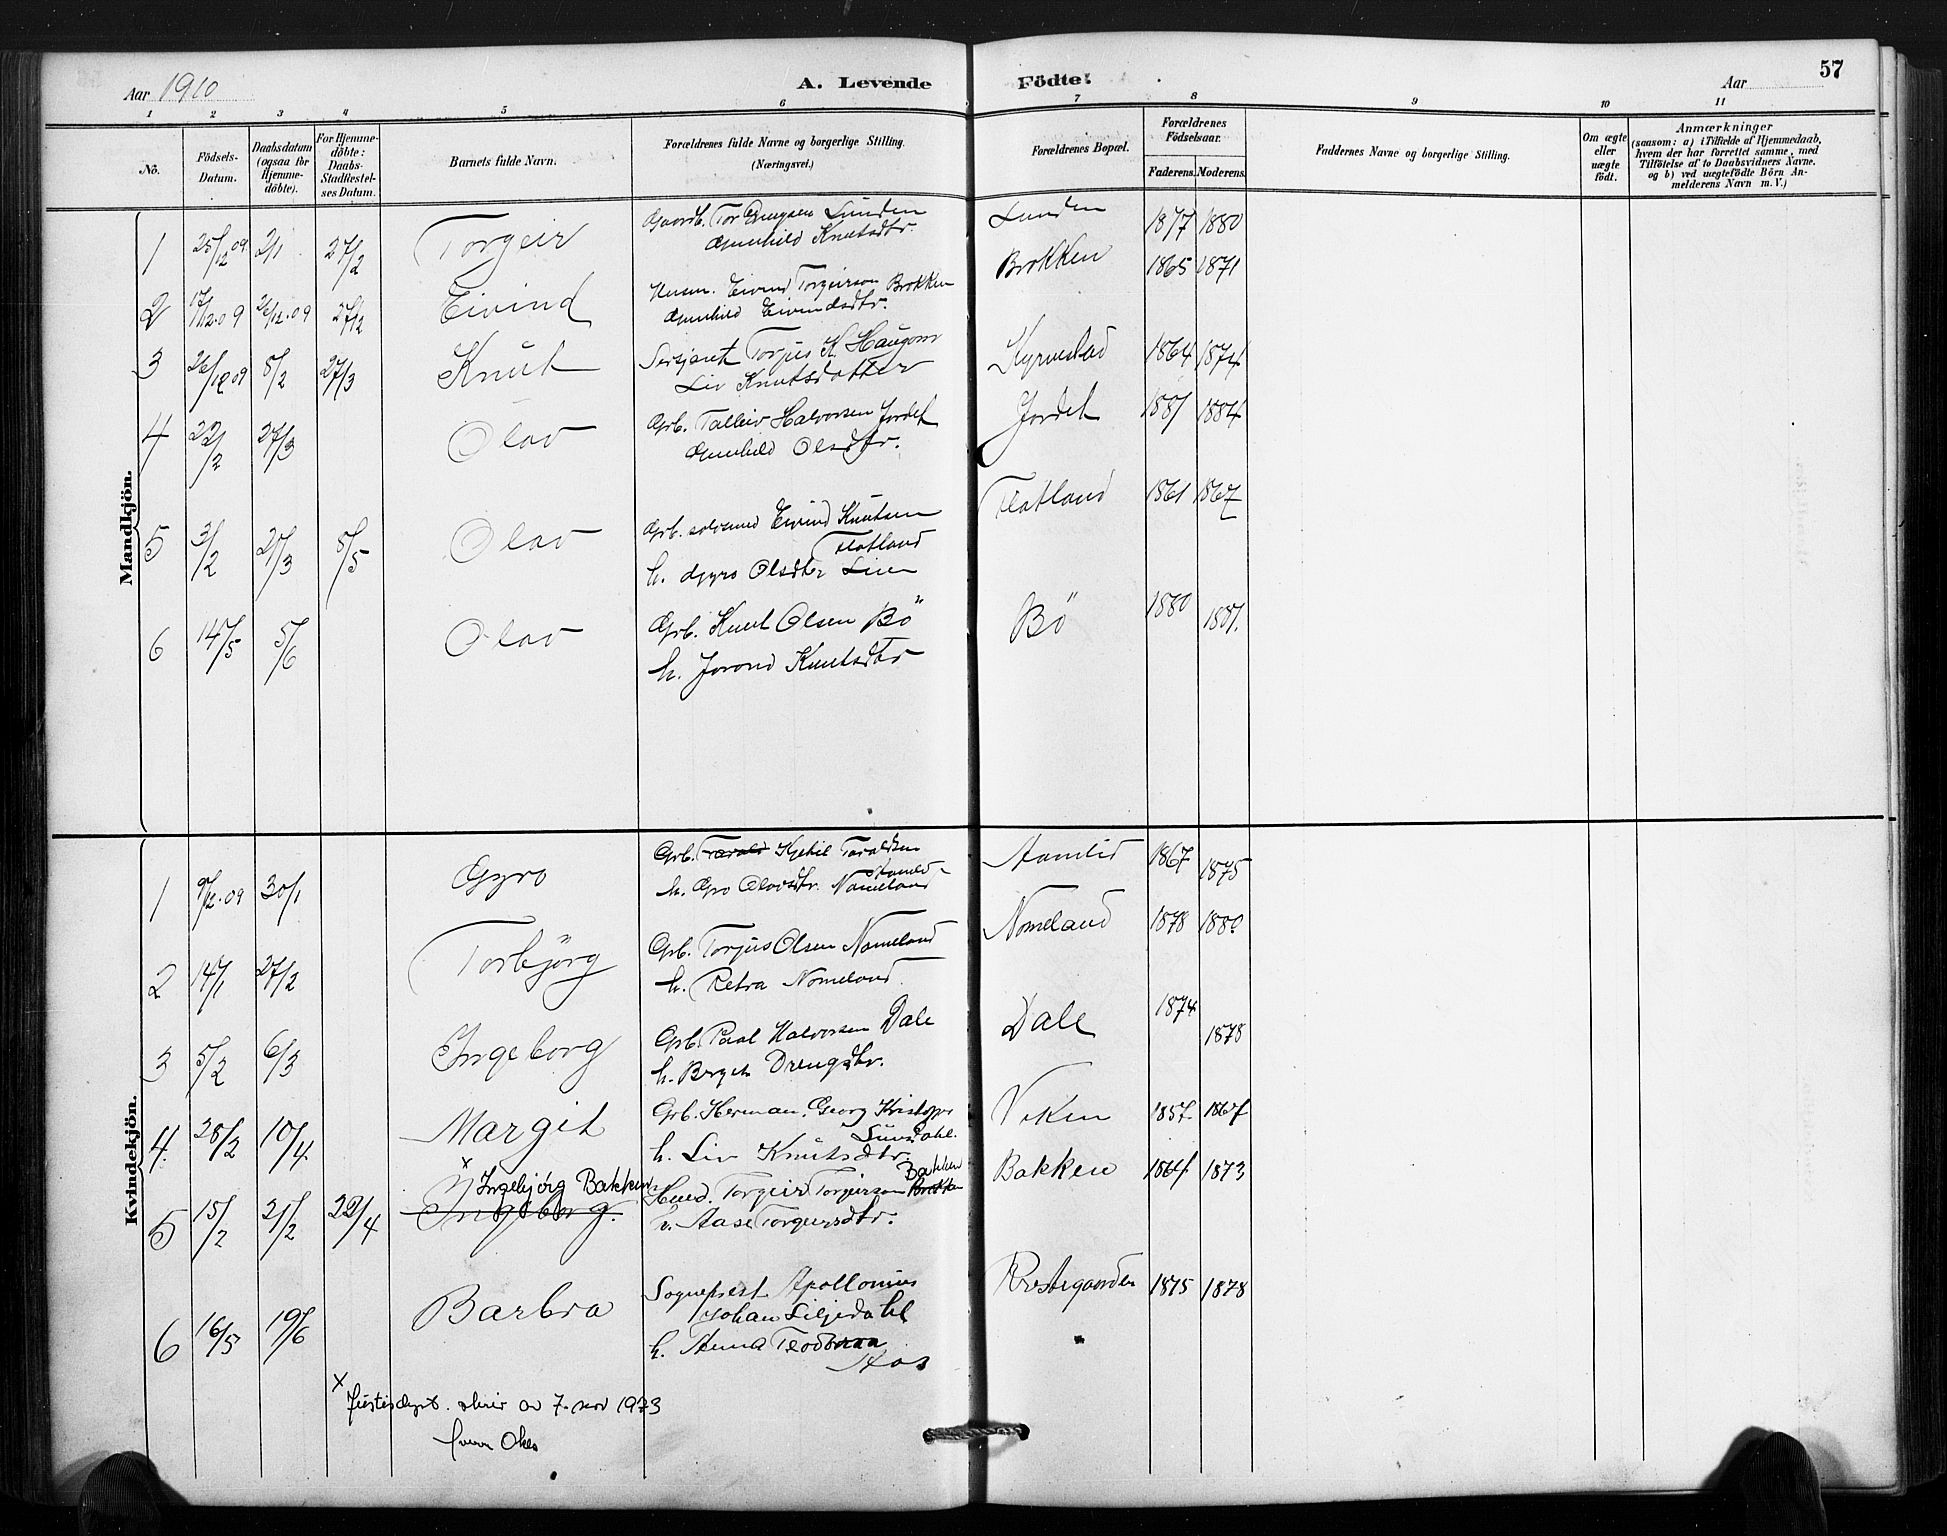 Aar 1910
A. Levende Födte.
Aar
57
1 2 3 4 5 6 7 8 9 10 11
No.
Födsels-Datum.
Daabsdatum (ogsaa for Hjemme-döbte).
For Hjemme-döbte: Daabs-Stadfæstel-ses Datum.
Barnets fulde Navn.
Forældrenes fulde Navne og borgerlige Stilling. (Næringsvei.)
Forældrenes Bopæl.
Forældrenes Födselsaar.
Faderens. Moderens.
Faddernes Navne og borgerlige Stilling.
Om ægte eller uægte födt.
Anmærkninger
(saasom: a) i Tilfælde af Hjemmedaab, hvem der har forrettet samme, med Tilföielse af to Daabsvidners Navne, og b) ved uægtefödte Börn An-melderens Navn m. V.)
Mandkjön.
1 25/12 09 2/1 27/2 Torgeir Gaardb. Tor Drengsen Lunden Lunden 1877 1880
Gunhild Knutsdtr.
2 17/12.09 26/12.09 27/2 Eivind Husm. Eivind Torgeirson Brokken Brokken 1865 1871
Gunhild Eivindsdtr.
3 26/12 09 8/2 27/3 Knut Sersjant Torjus K. Haugom 1864 1874
Liv Knutsdatter
4 22/2 27/3 Olav Grb. Talleiv Halvorsen Jordet Jordet 1881 1884
Gunhild Olsdtr.
5 3/2 27/3 5/5 Olav Grb. Eivind Knutsen Flatland 1861 1867
Flatland
h. Gyro Olsdtr Lien
6 14/5 5/6 Olav Grb. Knut Olsen Bö Bö 1880 1881.
h. Jorond Knutsdtr
Kvindekjön.
1 9/12.09 30/1 Gyro Grb. Tarald Kjetil Taraldsen Aamlid 1867 1875
Aamlid
h. Gro Olavsdtr. Nomeland
2 14/1 27/2 Torbjörg Grb. Torjus Olsen Nomeland Nomeland 1878 1880
h. Petra Nomeland.
3 5/2 6/3 Ingeborg Grb. Paal Halvorsen Dale Dale 1874 1878
h. Bergit Drengsdtr.
4. 28/2 10/4. Margit Grb. Herman. Georg Kristofer Viken 1857 1867
Lunsdahl.
h. Liv Knutsdtr.
x Ingebjörg Bakken Bakken
5 15/2 21/2 22/4 Ingeborg. Husm. Torgeir Torgeirson Brokken Bakken 1864 1873
h. Aase Torgeirsdtr.
6 16/5 19/6 Barbra Sogneprest Apollonius Prestegaarden 1875 1878
Johan Liljedahl
h. Anna Teodora
Aas
x Justisdept. skriv av 7. nov 1973